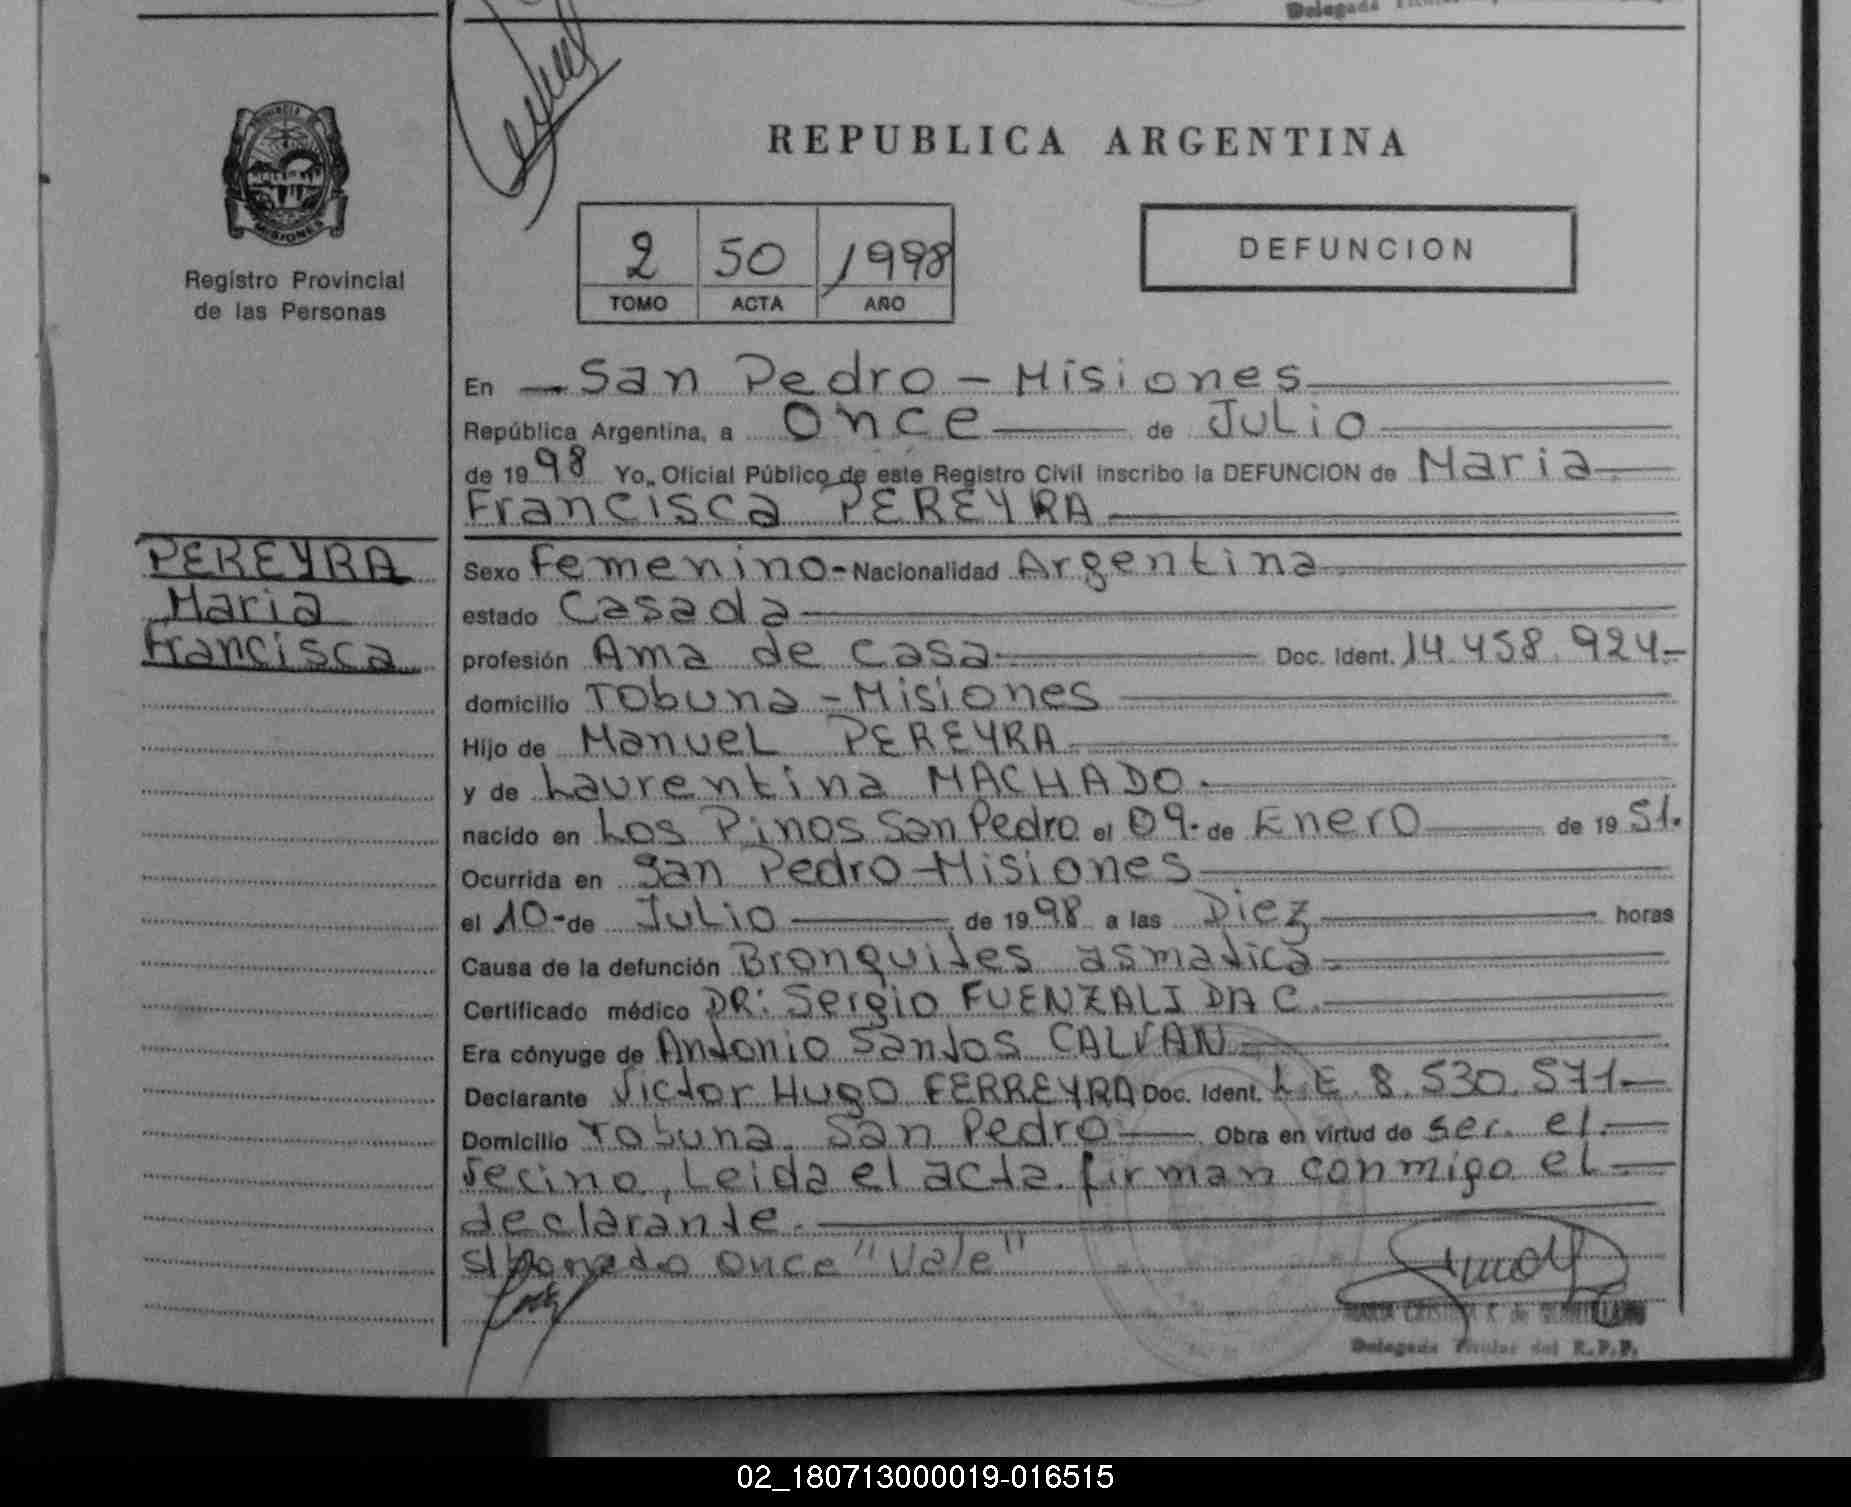 Delegada
REPUBLICA ARGENTINA
PROVINCIA DE
MISIONES
Registro Provincial
de las Personas
2 50 1998
TOMO ACTA AÑO
DEFUNCION
En San Pedro - Misiones
República Argentina, a Once de Julio
de 1998 Yo, Oficial Público de este Registro Civil inscribo la DEFUNCION de Maria
Francisca PEREYRA
PEREYRA
Maria
Francisca
Sexo Femenino - Nacionalidad Argentina
estado Casada
profesión Ama de casa Doc. Ident. 14.458.924-
domicilio Tobuna - Misiones
Hijo de Manuel PEREYRA
y de Laurentina MACHADO.
nacido en Los Pinos San Pedro el 09- de Enero de 1951.
Ocurrida en San Pedro - Misiones
el 10- de Julio de 1998 a las Diez horas
Causa de la defunción Bronquites asmatica
Certificado médico DR: Sergio FUENZALIDA C.
Era cónyuge de Antonio Santos CALVAN
Declarante Victor Hugo FERREYRA Doc. Ident. L.E. 8.530.571-
Domicilio Tobuna San Pedro Obra en virtud de ser el
vecino, Leida el acta firman conmigo el
declarante.
once "Vale"
MARIA CRISTINA K. de
Delegada Titular del R.P.P.
02_180713000019-016515